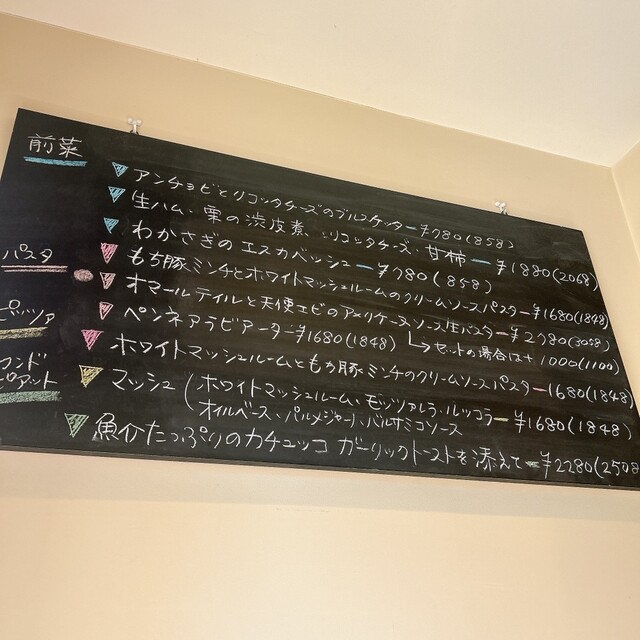 前菜
アンチョビとリコッタチーズのブルスケッター¥780(858)
生ハム、栗の渋皮煮、リコッタチーズ、甘柿 ー ¥1880(2068)
わかさぎのエスカベッシュー¥780(858)
パスタ
もち豚ミンチとホワイトマッシュルームのクリームソースパスター¥1680(1848)
オマールテイルと天使エビのアメリケーヌソース生パスター¥2780(3058)
セットの場合は+1000(1100)
ペンネアラビアーター¥1680(1848)
ホワイトマッシュルームともち豚ミンチのクリームソースパスター1680(1848)
ピッツァ
マッシュ(ホワイトマッシュルーム、モッツァレラ、ルッコラー¥1680(1848)
オイルベース、パルメジャーノ、バルサミコソース
魚介たっぷりのカチュッコ ガーリックトーストを添えてー¥2280(2508